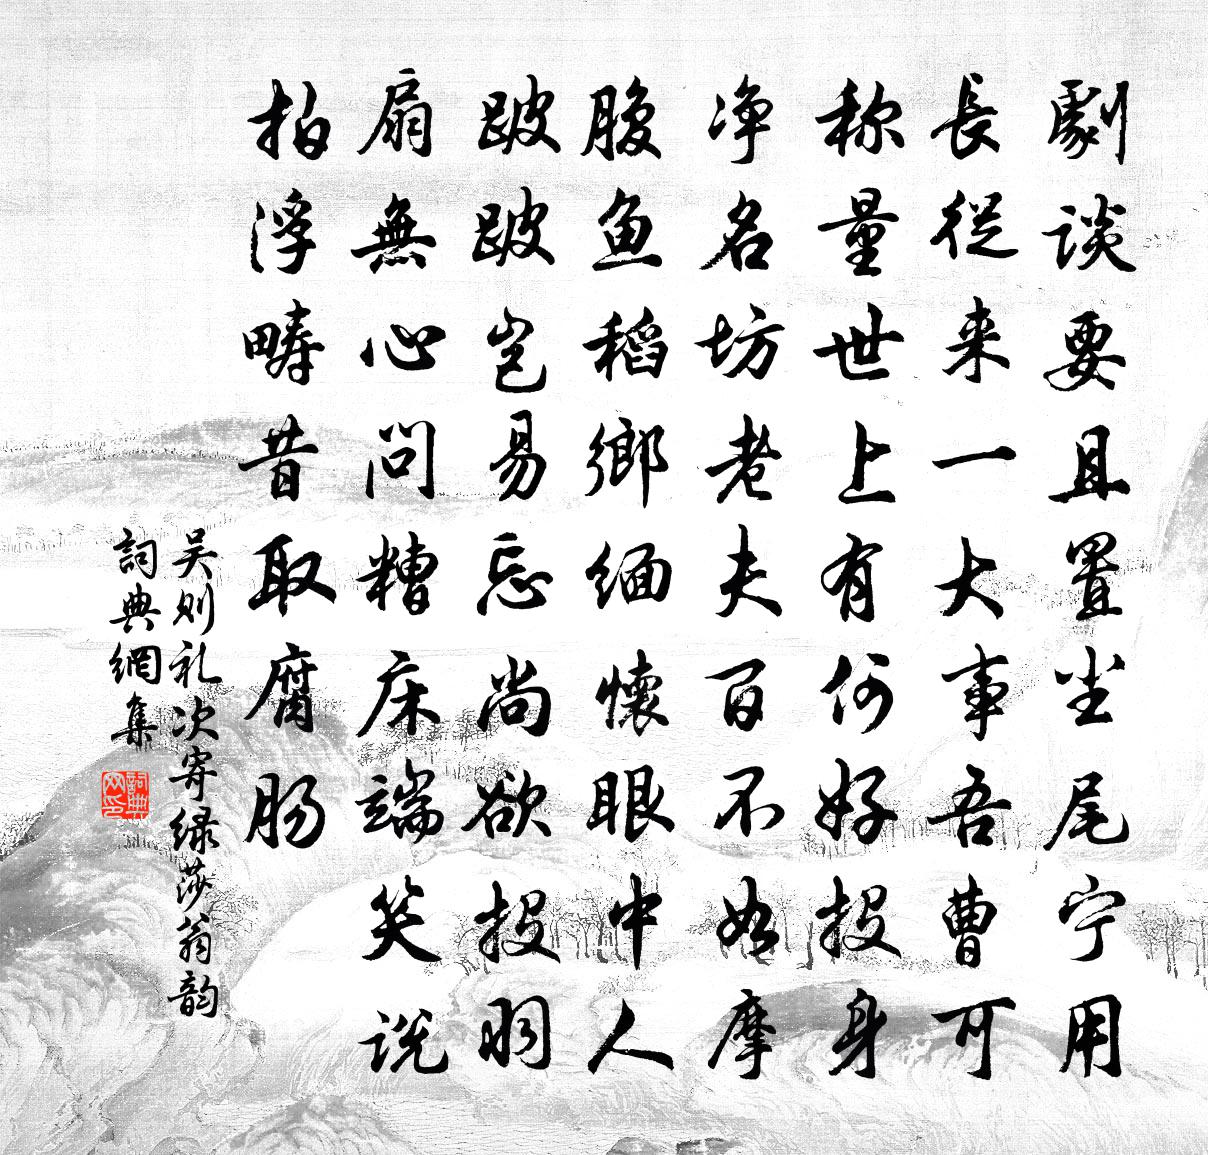 劇谈要且置尘尾宁用
長從来一大事吾曹可
称量世上有何好投身
净名坊老夫百不如摩
腹鱼稻鄉缅懷眼中人
跛跛岂易忘尚欲投羽
扇無心问糟床端笑说
拍浮畴昔取腐肠
吴则礼次寄绿莎翁韵
詞典網集
詞典网印